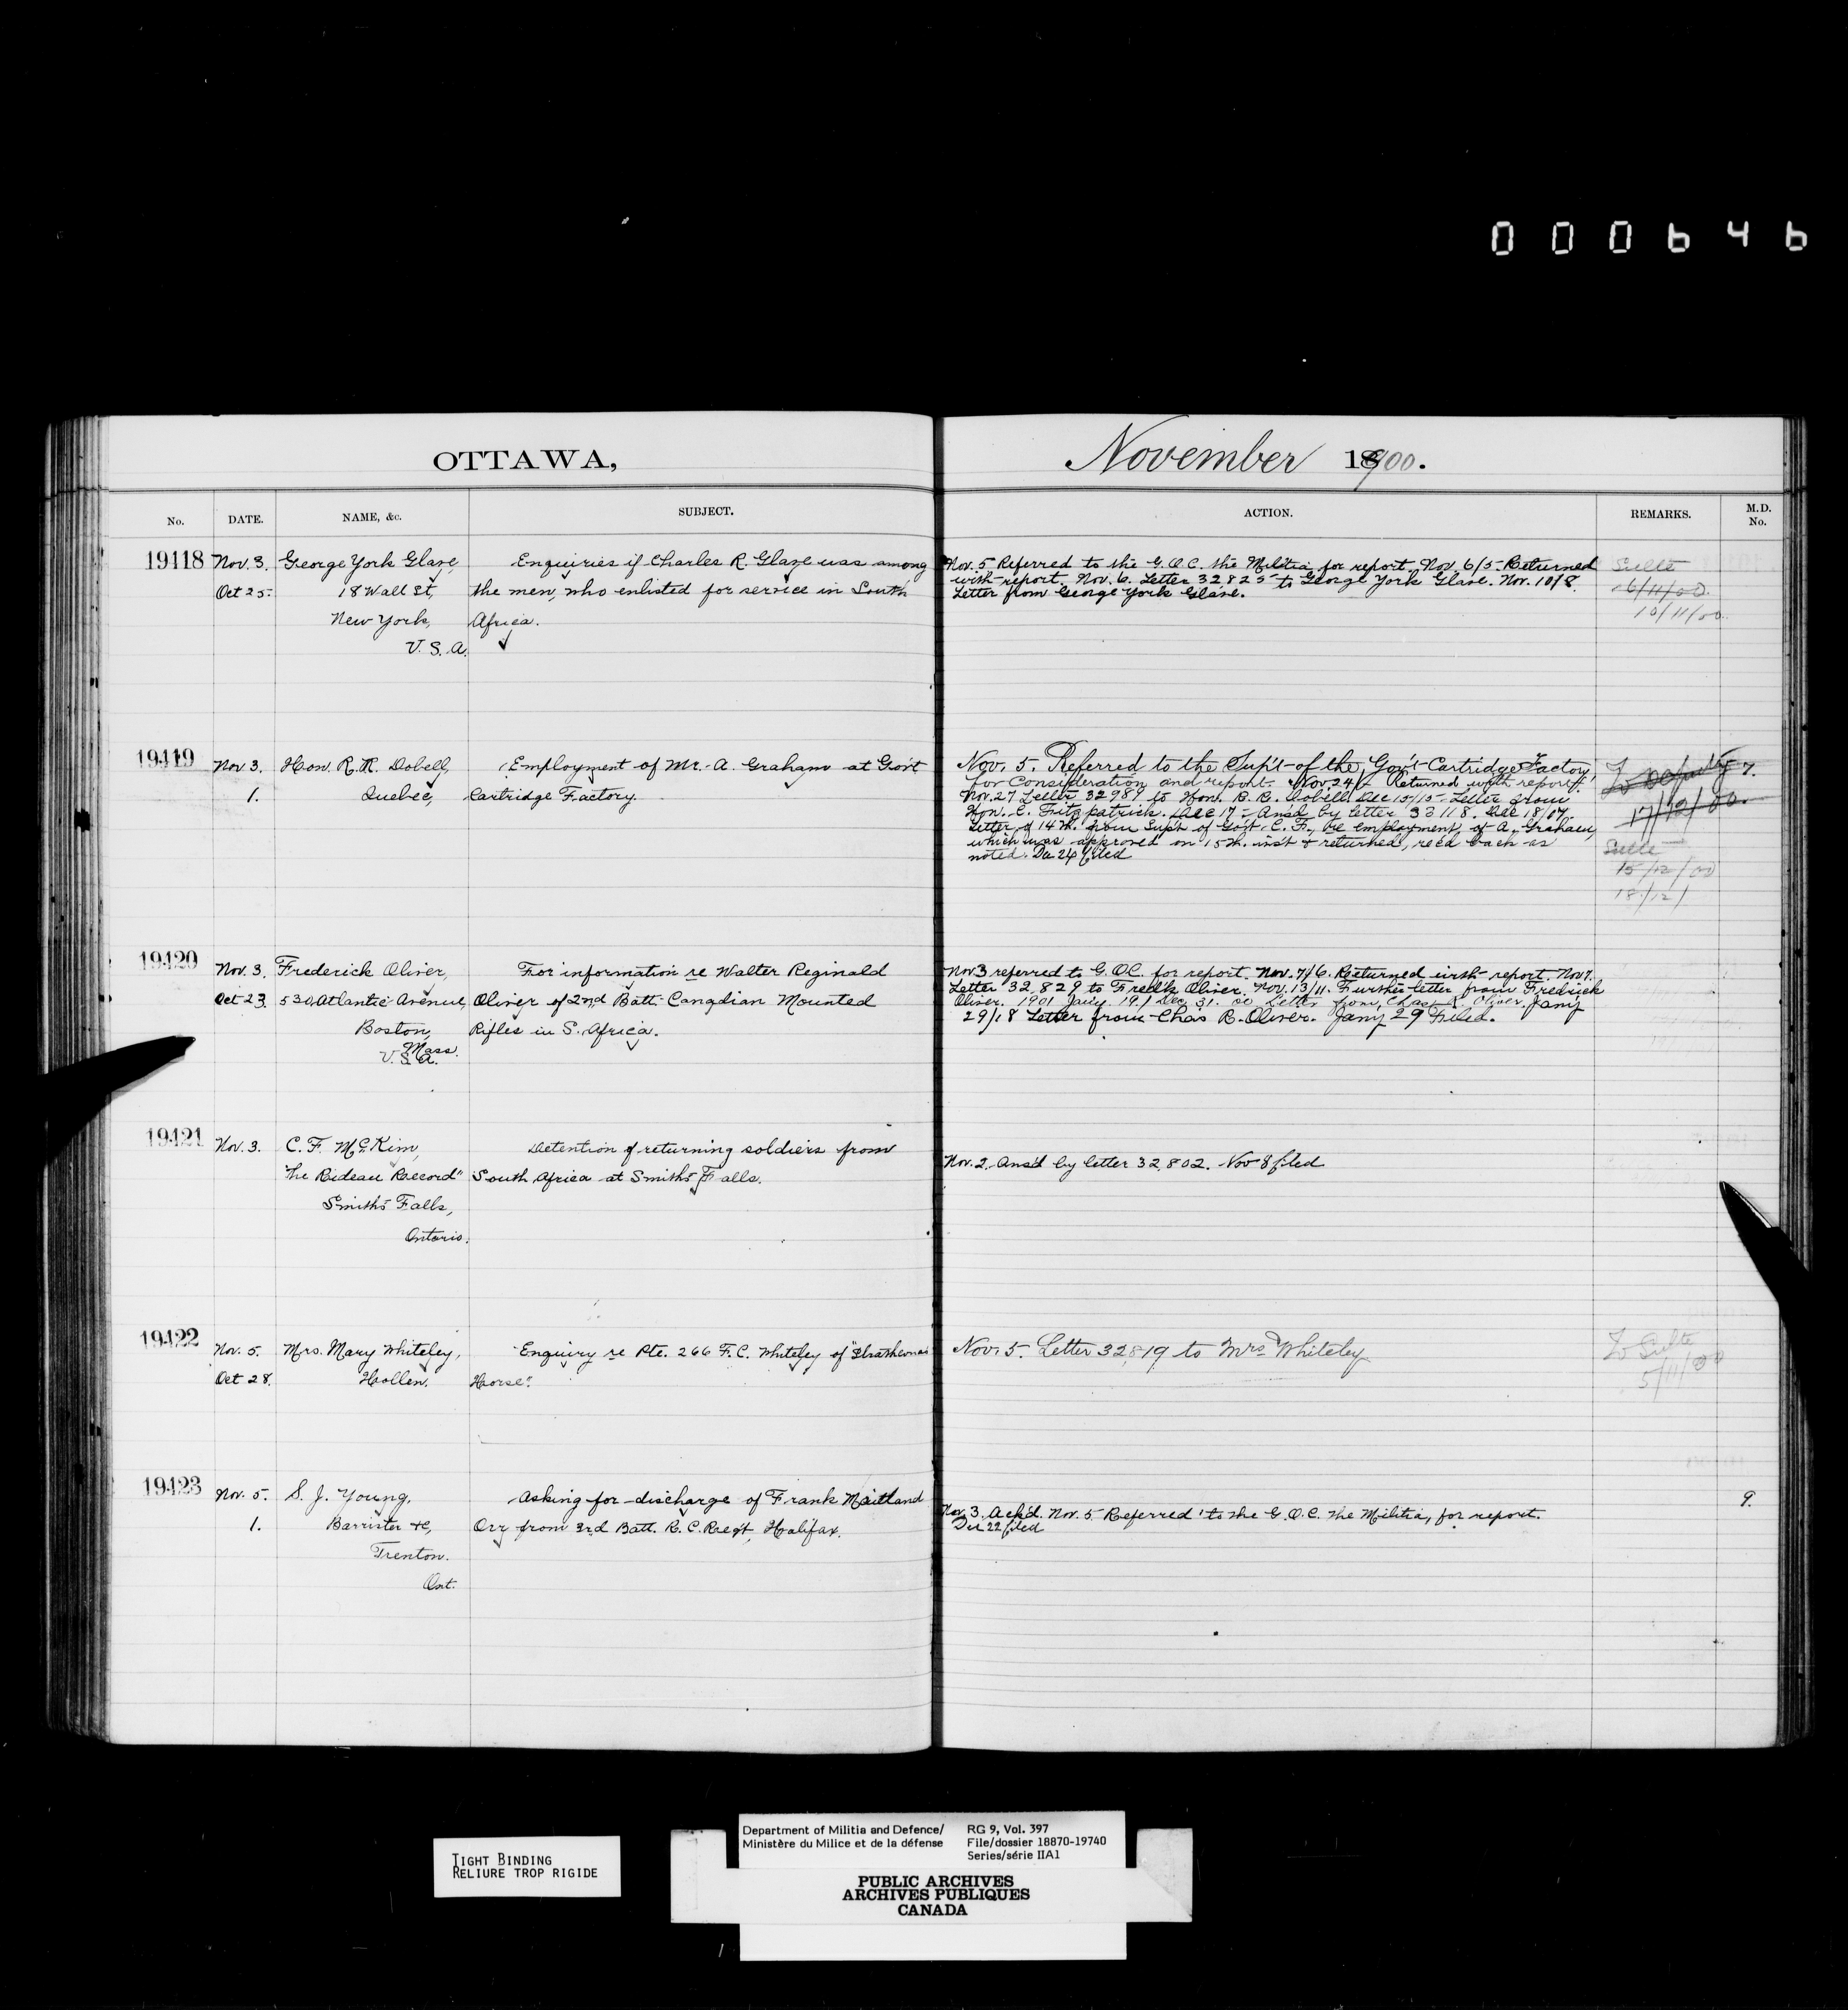 000646
OTTAWA,
No.
DATE.
NAME, &c.
SUBJECT.
19418
Nov. 3.
Oct 25.
George York Glaze,
18 Wall St,
New York,
U. S. A.
Enquiries if Charles R. Glaze was among
the men, who enlisted for service in South
Africa.
19419
Nov 3.
1.
Hon. R. R. Dobell,
Quebec,
Employment of Mr. A. Graham at Gov't
Cartridge Factory.
19420
Nov. 3.
Oct 23.
Frederick Oliver,
530, Atlantic Avenue,
Boston,
Mass.
U. S. A.
For information re Walter Reginald
Oliver of 2nd Batt. Canadian Mounted
Rifles in S. Africa.
19421
Nov. 3.
C. F. McKim,
"The Rideau Record"
Smith's Falls,
Ontario.
Detention of returning soldiers from
South Africa at Smith's Falls.
19422
Nov. 5.
Oct 28.
Mrs. Mary Whiteley,
Hollen.
Enquiry re Pte. 266 F. C. Whiteley of "Strathcona's
Horse".
19423
Nov. 5.
1.
S. J. Young,
Barrister &c,
Trenton.
Ont.
Asking for discharge of Frank Maitland
Orr from 3rd Batt. R. C. Reg't, Halifax.
November 1900.
ACTION.
REMARKS.
M.D.
No.
Nov. 5 Referred to the G. O. C. the Militia for report. Nov. 6/5 Returned
with report. Nov. 6. Letter 32,825 to George York Glaze. Nov. 10/8.
Letter from George York Glaze.
Sulte
6/11/00.
10/11/00.
Nov. 5. Referred to the Sup't of the Gov't Cartridge Factory,
for Consideration and report. Nov 24/ Returned with report.
Nov. 27 Letter 32989 to Hon. R. R. Dobell. Dec 15/15 Letter from
Hon. C. Fitzpatrick. Dec 17 Ans'd by letter 33118. Dec 18/07.
Letter of 14th. from Sup't of Gov't. C. F., re employment of A. Graham,
which was approved on 15th. inst & returned, rec'd back as
noted. Dec 24 filed
To Deputy
17/12/00.
Sulte
15/12/00
18/12/
7.
Nov 3 referred to G. O. C. for report. Nov. 7/6. Returned with report. Nov 7.
Letter 32,829 to Fred'k Oliver. Nov. 13/11. Further letter from Fredrick
Oliver. 1901 Jan'y 19/ Dec 31. 00 Letter from Chas. R. Oliver. Jan'y
29/18 Letter from Cha's R. Oliver. Jan'y 29 Filed.
Nov. 2. Ans'd by letter 32,802. Nov 8 filed
Nov. 5. Letter 32,819 to Mrs Whiteley.
To Sulte
5/11/00
Nov. 3. Ack'd. Nov. 5 Referred to the G. O. C. the Militia, for report.
Dec 22 filed
9.
TIGHT BINDING
RELIURE TROP RIGIDE
Department of Militia and Defence/
Ministère du Milice et de la défense
RG 9, Vol. 397
File/dossier 18870-19740
Series/série IIA1
PUBLIC ARCHIVES
ARCHIVES PUBLIQUES
CANADA